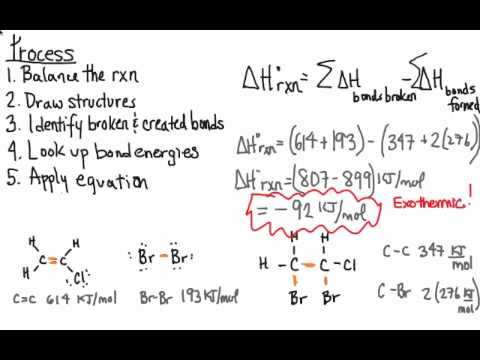 Process
1. Balance the rxn
2. Draw structures
3. Identify broken & created bonds
4. Look up bond energies
5. Apply equation
ΔH°rxn = ΣΔH bonds broken - ΣΔH bonds formed
ΔH°rxn = (614 + 193) - (347 + 2(276))
ΔH°rxn = (807 - 899) KJ/mol
= - 92 KJ/mol
Exothermic!
H H
C=C
H :Cl:
C=C 614 KJ/mol
:Br-Br:
Br-Br 193 KJ/mol
H H
H - C - C - Cl
Br Br
C-C 347 KJ/mol
C-Br 2(276 KJ/mol)